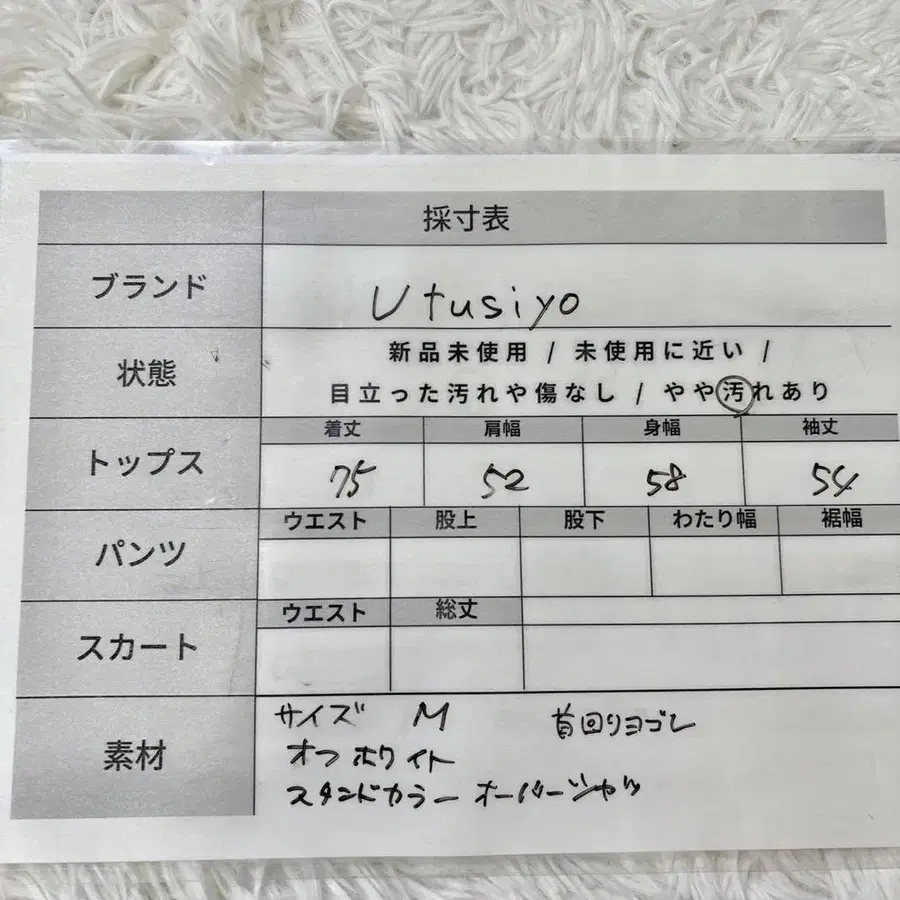 採寸表
ブランド
Utusiyo
状態
新品未使用 / 未使用に近い /
目立った汚れや傷なし / やや汚れあり
トップス
着丈 肩幅 身幅 袖丈
75 52 58 54
パンツ
ウエスト 股上 股下 わたり幅 裾幅
スカート
ウエスト 総丈
素材
サイズ M 首回りヨゴレ
オフホワイト
スタンドカラーオーバーシャツ